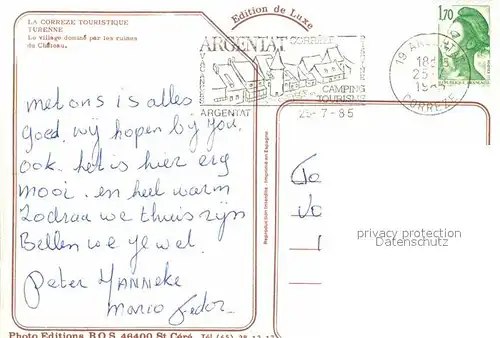 LA CORREZE TOURISTIQUE
TURENNE
Le village dominé par les ruines
du Château.
Edition de Luxe
ARGENTAT
CORRÈZE
VACANCES
CAMPING
TOURISME
ARGENTAT
25-7-85
1,70
19 ARGENTAT
18H
25
19
CORREZE
met ons is alles
goed. wij hopen bij jou
ook. het is hier erg
mooi. en heel warm
Zodraa we thuis zijn
Bellen we je wel.
Peter YANNEKE
Mario Fedor.
Reproduction Interdite - Imprimé en Espagne
privacy protection
Datenschutz
Photo Editions B.O.S. 46400 St Céré. Tél (65)